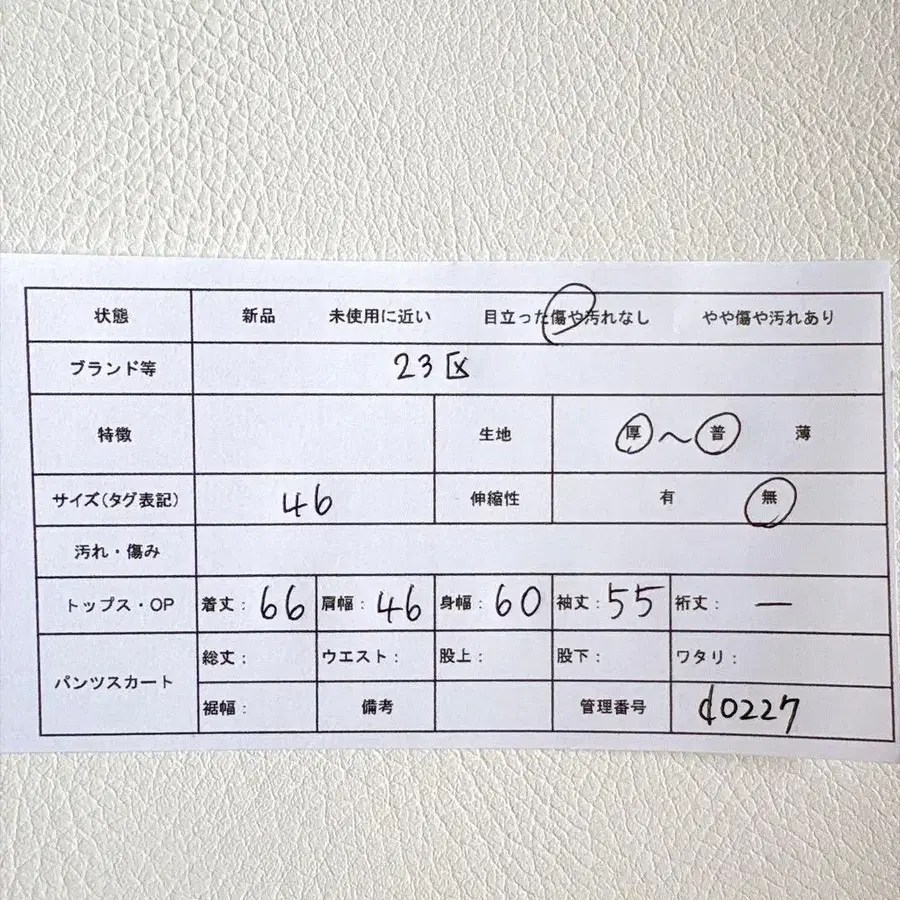 状態 新品 未使用に近い 目立った傷や汚れなし やや傷や汚れあり
ブランド等 23区
特徴 生地 厚〜普 薄
サイズ(タグ表記) 46 伸縮性 有 無
汚れ・傷み
トップス・OP 着丈: 66 肩幅: 46 身幅: 60 袖丈: 55 裄丈: —
パンツスカート 総丈: ウエスト: 股上: 股下: ワタリ:
裾幅: 備考 管理番号 d0227